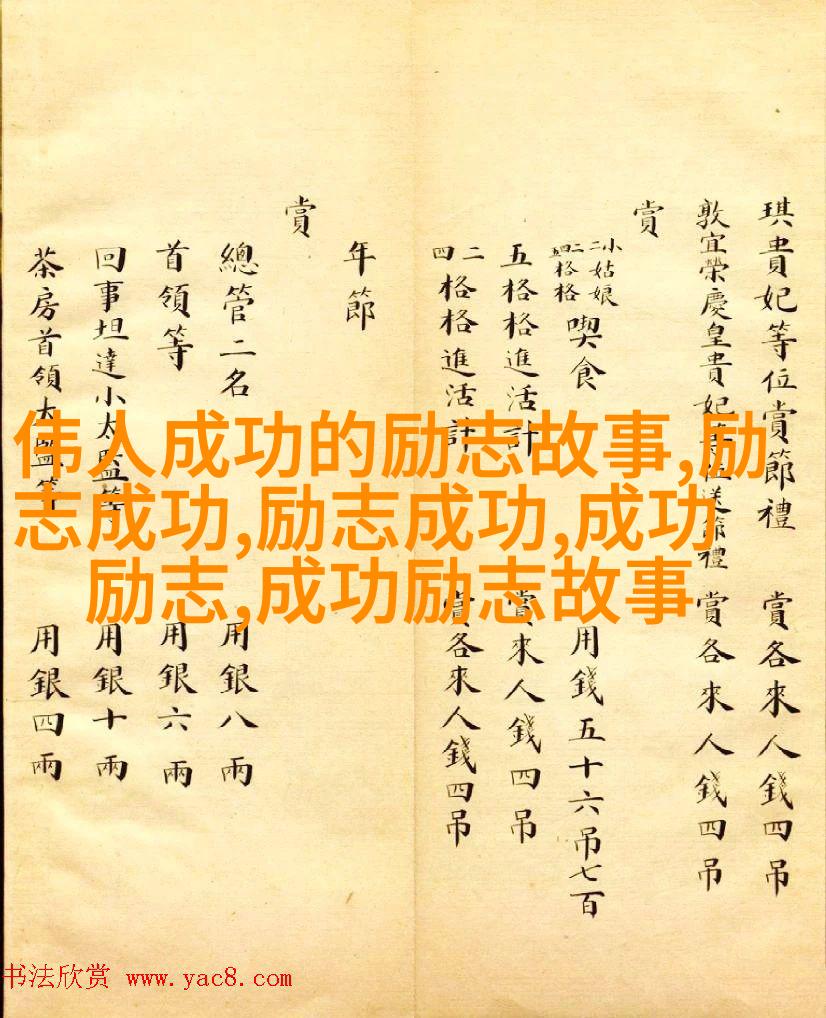 琪貴妃等位賞節禮 賞各來人錢四吊
敦宜榮慶皇貴妃等位送節禮 賞各來人錢四吊
賞
二小姑娘 格格 喫食 用錢五十六吊七百
五格格進活計 賞來人錢四吊
二四格格進活計 賞各來人錢四吊
年節
賞
總管二名 用銀八兩
首領等 用銀六兩
回事坦達小太監等 用銀十兩
茶房首領太監等 用銀四兩
伟人成功的励志故事,励
志成功,励志成功,成功
励志,成功励志故事
书法欣赏 www.yac8.com